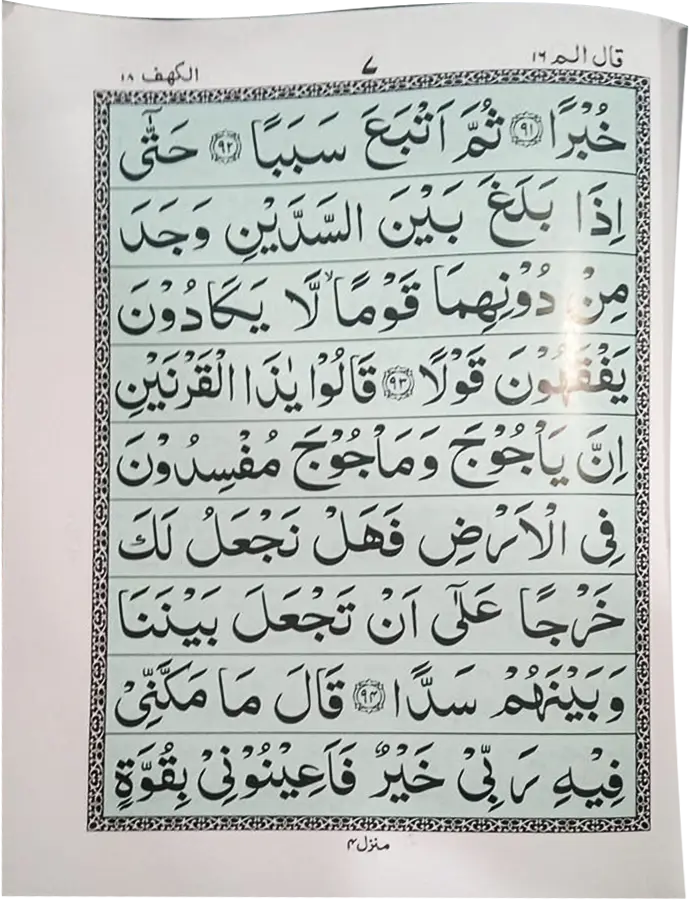 قال الم ١٦ ٧ الكهف ١٨
خُبْرًا ﴿٩١﴾ ثُمَّ اَتْبَعَ سَبَبًا ﴿٩٢﴾ حَتّٰٓى
اِذَا بَلَغَ بَيْنَ السَّدَّيْنِ وَجَدَ
مِنْ دُوْنِهِمَا قَوْمًا ۙ لَّا يَكَادُوْنَ
يَفْقَهُوْنَ قَوْلًا ﴿٩٣﴾ قَالُوْا يٰذَا الْقَرْنَيْنِ
اِنَّ يَاْجُوْجَ وَمَاْجُوْجَ مُفْسِدُوْنَ
فِى الْاَرْضِ فَهَلْ نَجْعَلُ لَكَ
خَرْجًا عَلٰٓى اَنْ تَجْعَلَ بَيْنَنَا
وَبَيْنَهُمْ سَدًّا ﴿٩٤﴾ قَالَ مَا مَكَّنِّىْ
فِيْهِ رَبِّىْ خَيْرٌ فَاَعِيْنُوْنِىْ بِقُوَّةٍ
منزل ٤